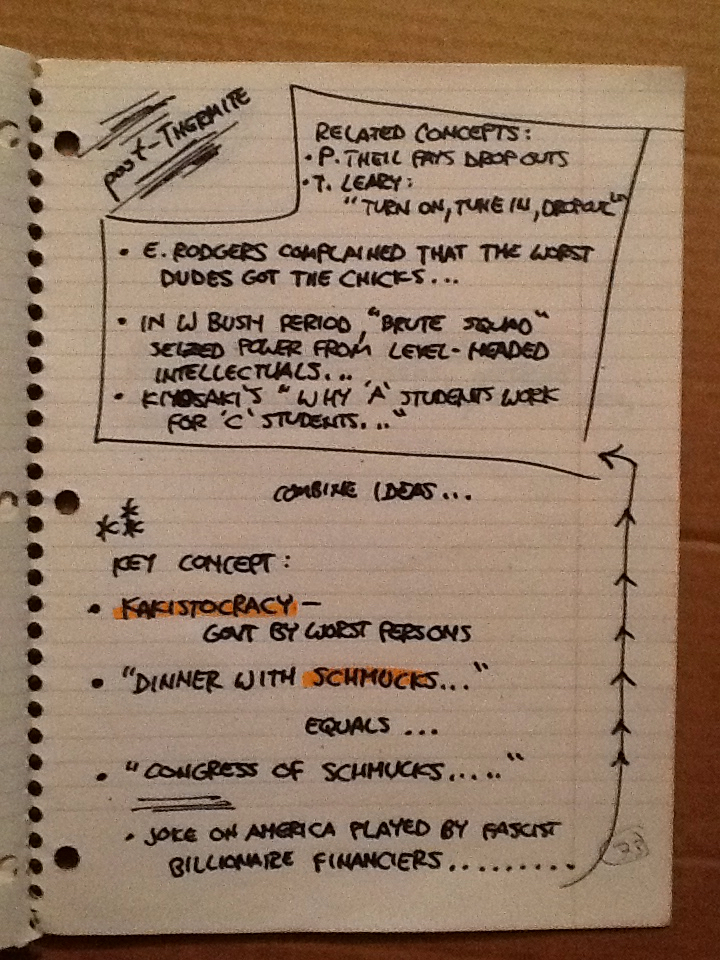 post-THERMITE
RELATED CONCEPTS:
• P. THEIL PAYS DROP OUTS
• T. LEARY:
"TURN ON, TUNE IN, DROPOUT"
• E. RODGERS COMPLAINED THAT THE WORST
DUDES GOT THE CHICKS...
• IN W BUSH PERIOD, "BRUTE SQUAD"
SEIZED POWER FROM LEVEL-HEADED
INTELLECTUALS...
• KIYOSAKI'S "WHY 'A' STUDENTS WORK
FOR 'C' STUDENTS..."
COMBINE IDEAS...
***
KEY CONCEPT:
• KAKISTOCRACY –
GOVT BY WORST PERSONS
• "DINNER WITH SCHMUCKS..."
EQUALS ...
• "CONGRESS OF SCHMUCKS....."
• JOKE ON AMERICA PLAYED BY FASCIST
BILLIONAIRE FINANCIERS.........
23